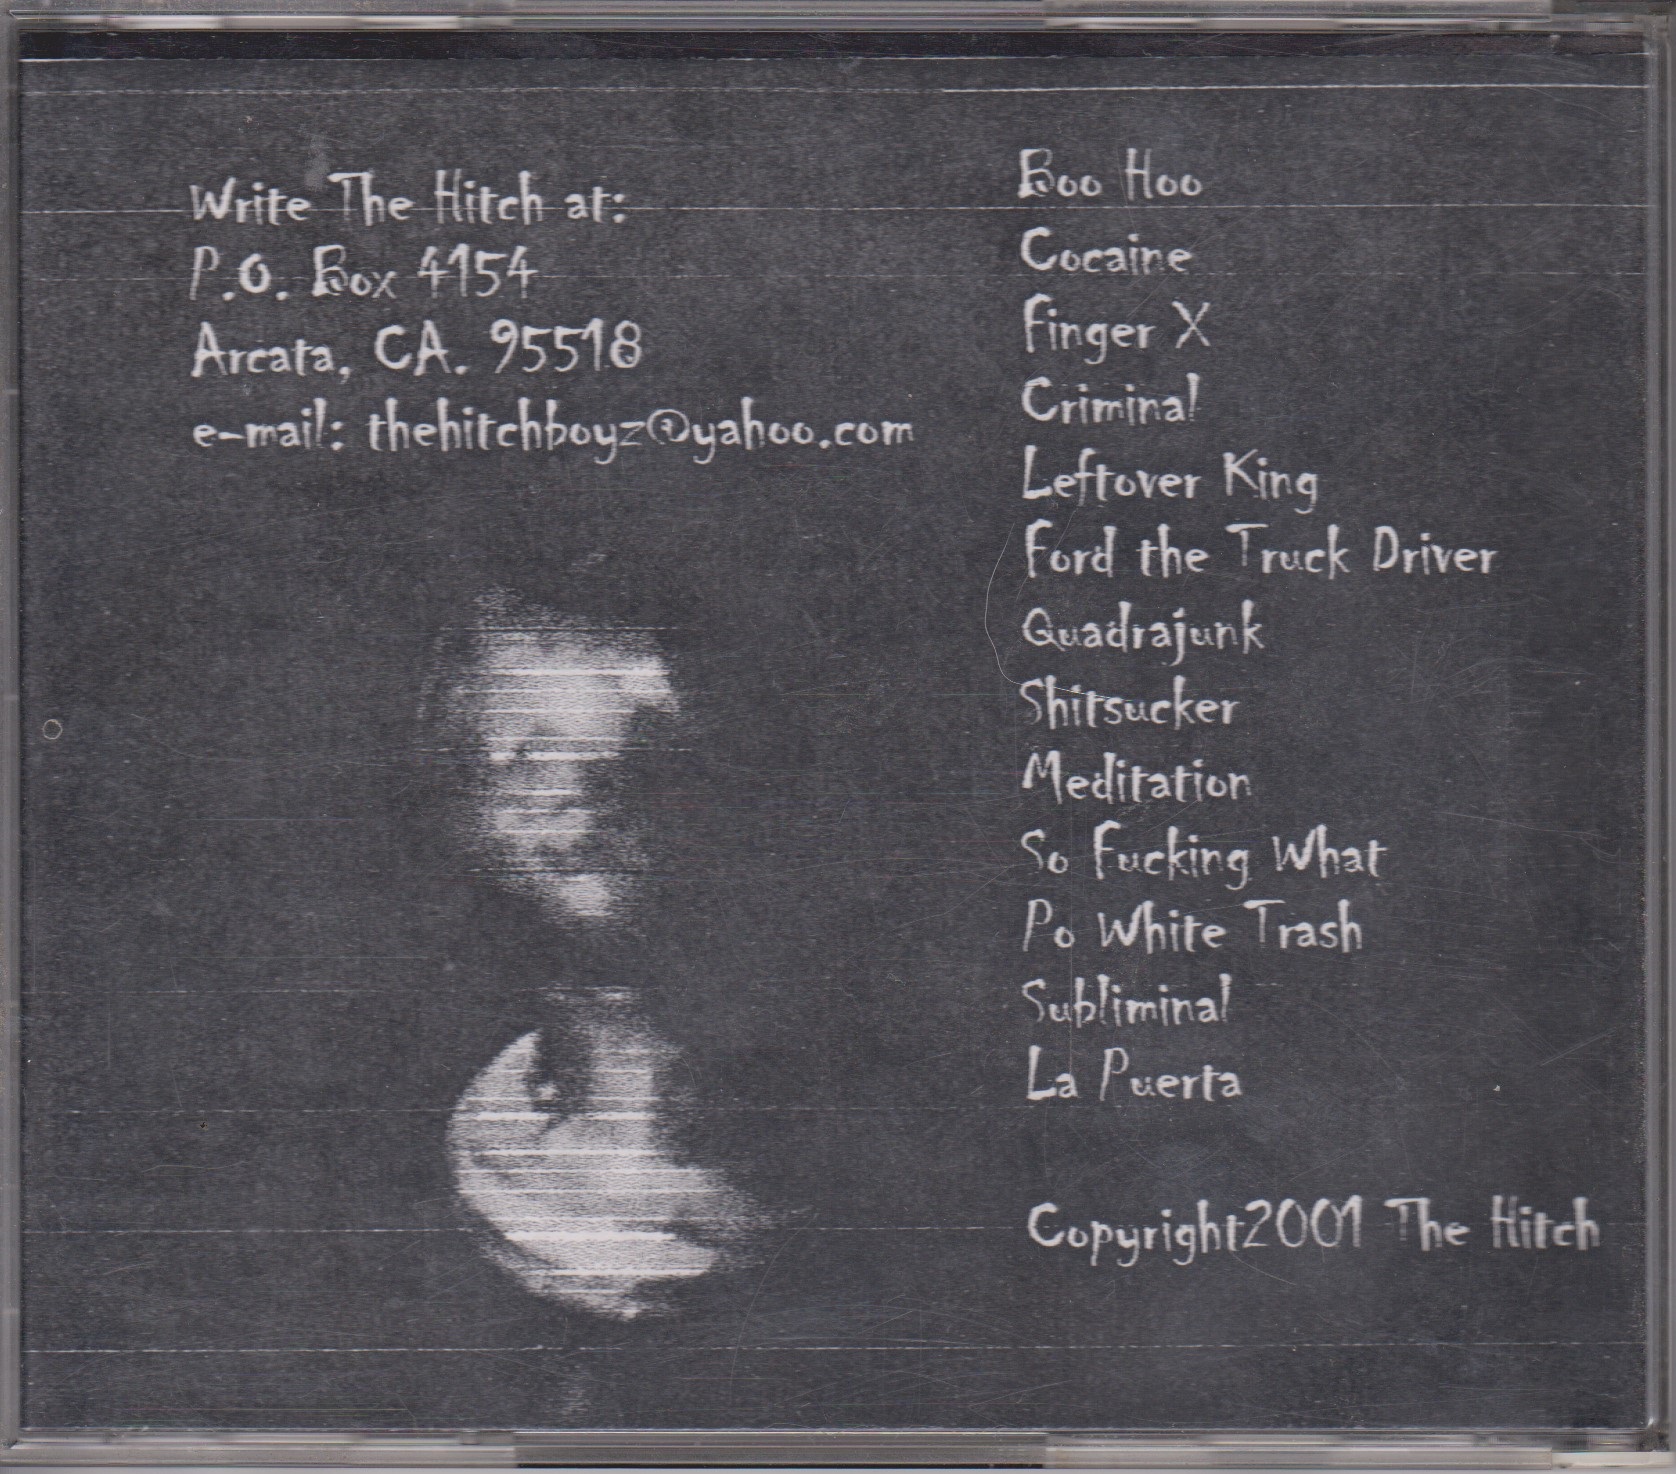 Write The Hitch at:
P.O. Box 4154
Arcata, CA. 95518
e-mail: thehitchboyz@yahoo.com
Boo Hoo
Cocaine
Finger X
Criminal
Leftover King
Ford the Truck Driver
Quadrajunk
Shitsucker
Meditation
So Fucking What
Po White Trash
Subliminal
La Puerta
Copyright2001 The Hitch